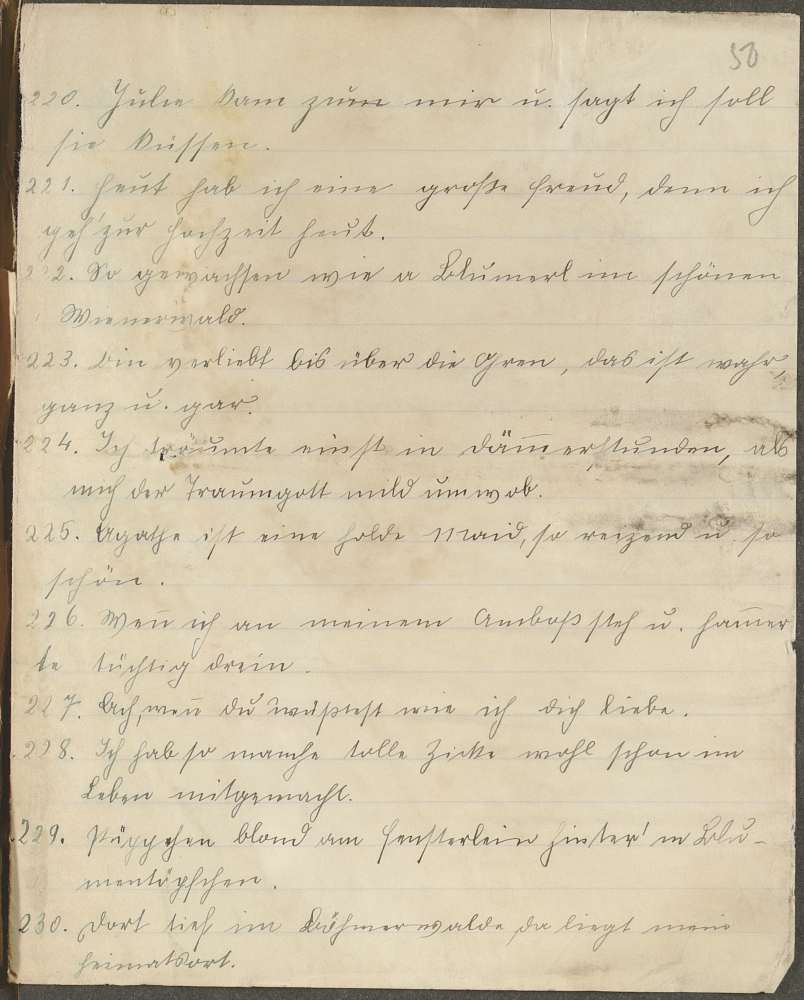 50
220. Julie kam zu mir u. sagt ich soll
sie küssen.
221. Heut hab ich eine große Freud, denn ich
geh' zur Hochzeit heut.
222. So gewachsen wie a Blumerl im schönen
Wienerwald.
223. Bin verliebt bis über die Ohren, das ist wahr,
ganz u. gar.
224. Ich träumte einst in Däm̄erstunden, als
mich der Traumgott mild umwob.
225. Agathe ist eine holde Maid, so reizend u. so
schön.
226. Wen̄ ich an meinem Amboß steh u. ham̄er
te tüchtig drein.
227. Ach, wen̄ du wüßtest wie ich dich liebe.
228. Ich hab so manche tolle Zicke wohl schon im
Leben mitgemacht.
229. Püppchen blond am Fensterlein hinter'm Blu-
mentöpfchen.
230. Dort tief im Böhmerwalde da liegt mein
Heimatsort.